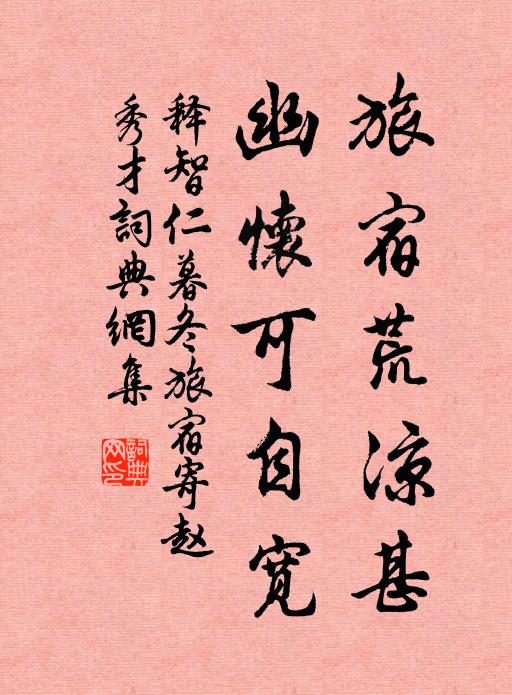 旅宿荒凉甚
幽懷可自寬
释智仁暮冬旅宿寄赵
秀才詞典網集
詞典
网印